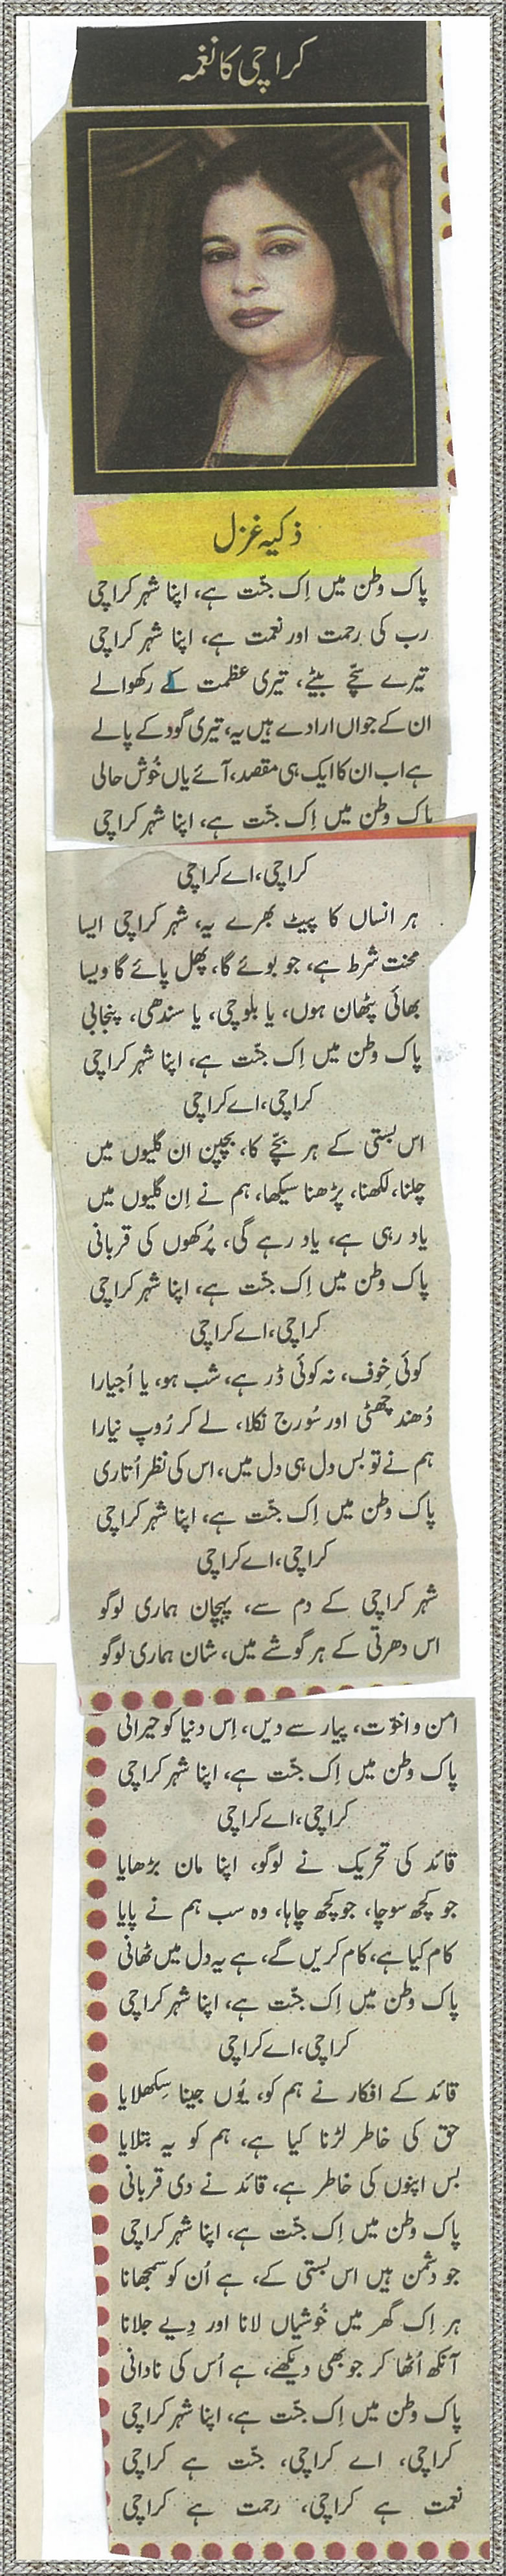 کراچی کا نغمہ
ذکیہ غزل
پاک وطن میں اِک جنّت ہے، اپنا شہر کراچی
رب کی رحمت اور نعمت ہے، اپنا شہر کراچی
تیرے سچّے بیٹے، تیری عظمت کے رکھوالے
ان کے جواں ارادے ہیں یہ، تیری گود کے پالے
ہے اب ان کا ایک ہی مقصد، آئے یاں خُوش حالی
پاک وطن میں اِک جنّت ہے، اپنا شہر کراچی
کراچی، اے کراچی
ہر انساں کا پیٹ بھرے یہ، شہر کراچی ایسا
محنت شرط ہے، جو بوئے گا، پھل پائے گا ویسا
بھائی پٹھان ہوں، یا بلوچی، یا سندھی، پنجابی
پاک وطن میں اِک جنّت ہے، اپنا شہر کراچی
کراچی، اے کراچی
اس بستی کے ہر بچّے کا، بچپن ان گلیوں میں
چلنا، لکھنا، پڑھنا سیکھا، ہم نے اِن گلیوں میں
یاد رہی ہے، یاد رہے گی، پُرکھوں کی قربانی
پاک وطن میں اِک جنّت ہے، اپنا شہر کراچی
کراچی، اے کراچی
کوئی خوف، نہ کوئی ڈر ہے، شب ہو، یا اُجیارا
دُھند چھٹی اور سُورج نکلا، لے کر رُوپ نیارا
ہم نے تو بس دل ہی دل میں، اس کی نظر اُتاری
پاک وطن میں اِک جنّت ہے، اپنا شہر کراچی
کراچی، اے کراچی
شہر کراچی کے دم سے، پہچان ہماری لوگو
اس دھرتی کے ہر گوشے میں، شان ہماری لوگو
امن و اخوّت، پیار سے دیں، اِس دنیا کو حیرانی
پاک وطن میں اِک جنّت ہے، اپنا شہر کراچی
کراچی، اے کراچی
قائد کی تحریک نے لوگو، اپنا مان بڑھایا
جو کچھ سوچا، جو کچھ چاہا، وہ سب ہم نے پایا
کام کیا ہے، کام کریں گے، ہے یہ دل میں ٹھانی
پاک وطن میں اِک جنّت ہے، اپنا شہر کراچی
کراچی، اے کراچی
قائد کے افکار نے ہم کو، یُوں جینا سِکھلایا
حق کی خاطر لڑنا کیا ہے، ہم کو یہ بتلایا
بس اپنوں کی خاطر ہے، قائد نے دی قربانی
پاک وطن میں اِک جنّت ہے، اپنا شہر کراچی
جو دشمن ہیں اس بستی کے، ہے اُن کو سمجھانا
ہر اِک گھر میں خُوشیاں لانا اور دِیے جلانا
آنکھ اُٹھا کر جو بھی دیکھے، ہے اُس کی نادانی
پاک وطن میں اِک جنّت ہے، اپنا شہر کراچی
کراچی، اے کراچی، جنّت ہے کراچی
نعمت ہے کراچی، رحمت ہے کراچی